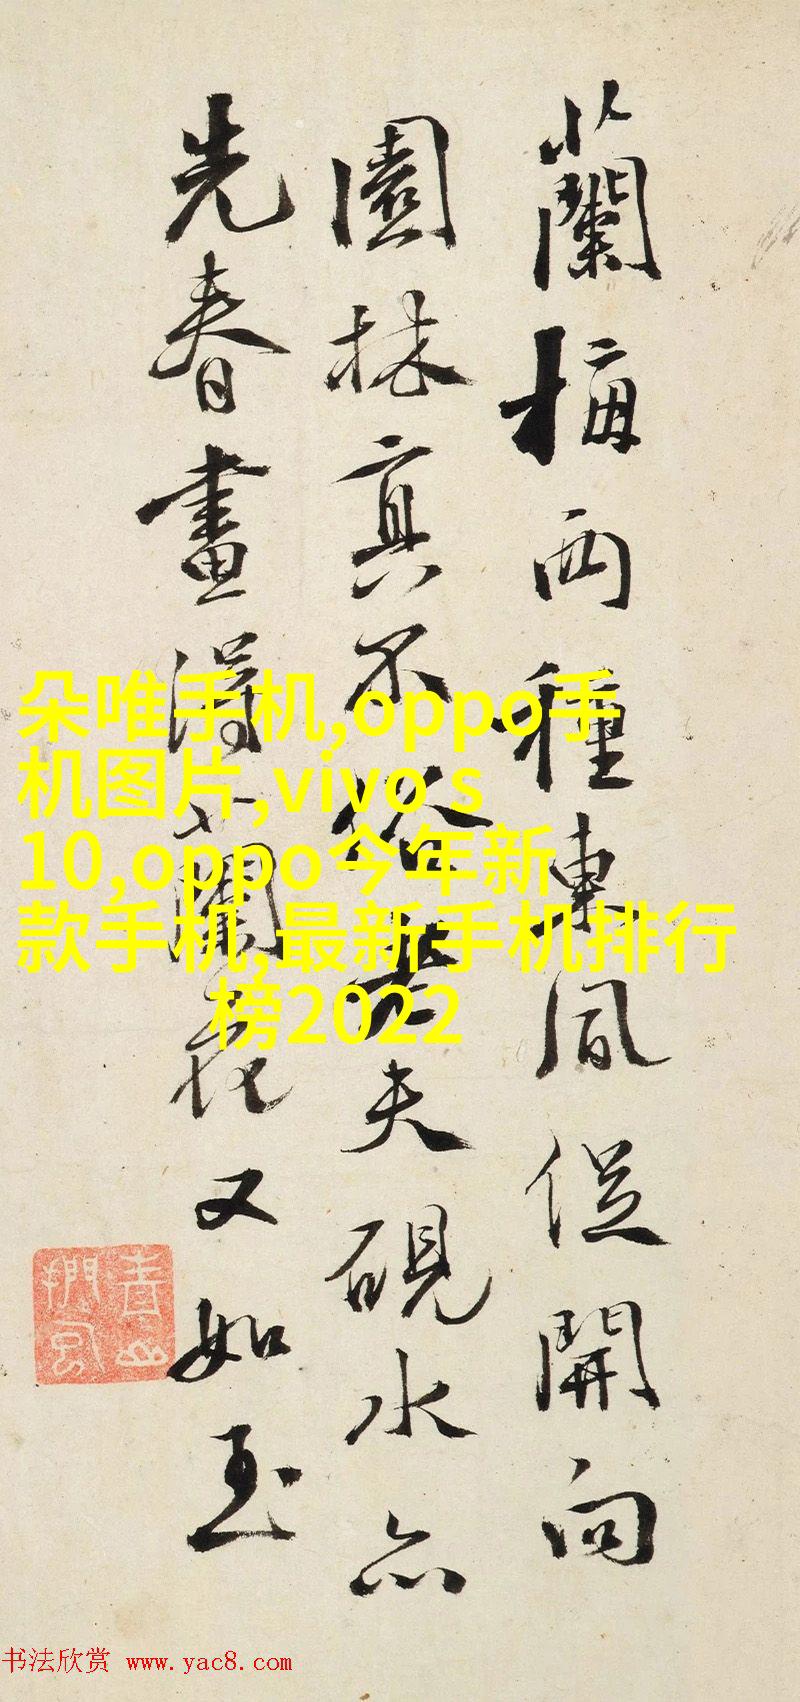 蘭梅两種東風從開向
園林真不俗老夫硯水亦
先春畫得蘭花又如玉
朵唯手机,oppo手
机图片,vivo s
10,oppo今年新
款手机,最新手机排行
榜2022
书法欣赏 www.yac8.com